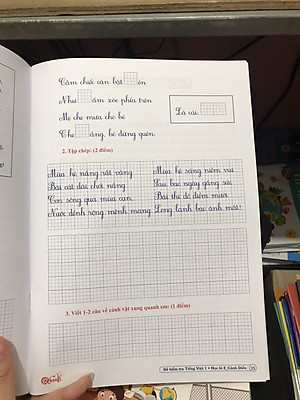 Cầm chiếc cán bật ên
Như ấm xòe phía trên
Mẹ che mưa cho bé
Che ắng, bé đừng quên.
Là cái:
2. Tập chép: (2 điểm)
Mùa hè nắng rất vàng
Bãi cát dài chói nắng
Con sóng qua mùa cạn
Nước dềnh rộng mênh mang
Mùa hè sáng niềm vui
Tàu bạc ngày gắng sức
Bài thi đỏ điểm mười
Long lanh bao ánh mắt!
3. Viết 1-2 câu về cảnh vật xung quanh em: (1 điểm)
Đề kiểm tra Tiếng Việt 1 • Học kì 2_Cánh Diều 35